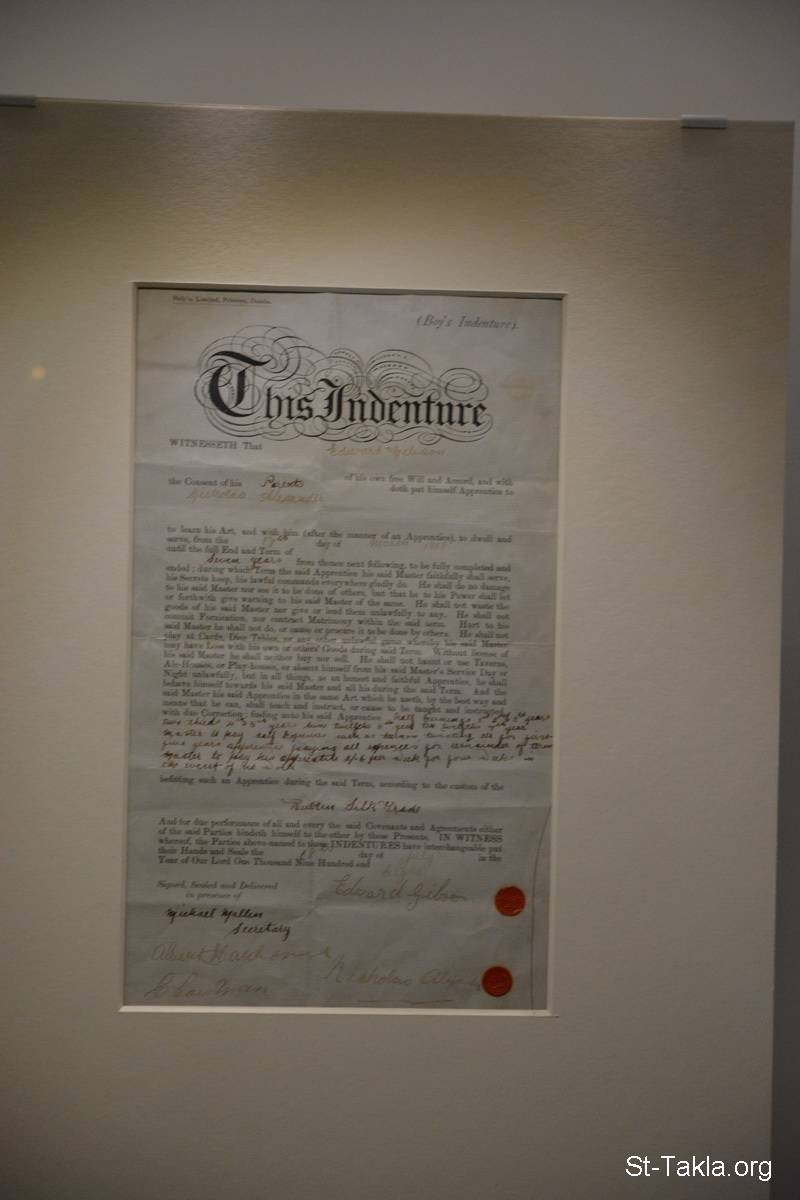 Hely's, Limited, Printers, Dublin.
(Boy's Indenture).
This Indenture
WITNESSETH That Edward Gibson
of his own free Will and Accord, and with
the Consent of his Parents doth put himself Apprentice to
Nicholas Alexander
to learn his Art, and with him (after the manner of an Apprentice), to dwell and
serve, from the day of March
until the full End and Term of
Seven years from thence next following, to be fully completed and
ended; during which Term the said Apprentice his said Master faithfully shall serve,
his Secrets keep, his lawful commands everywhere gladly do. He shall do no damage
to his said Master nor see it to be done of others, but that he to his Power shall let
or forthwith give warning to his said Master of the same. He shall not waste the
goods of his said Master nor give or lend them unlawfully to any. He shall not
commit Fornication, nor contract Matrimony within the said term. Hurt to his
said Master he shall not do, or cause or procure it to be done by others. He shall not
play at Cards, Dice Tables, or any other unlawful game whereby his said Master
may have Loss with his own or others' Goods during said Term. Without license of
his said Master he shall neither buy nor sell. He shall not haunt or use Taverns,
Ale-Houses, or Play-houses, or absent himself from his said Master's Service Day or
Night unlawfully, but in all things, as an honest and faithful Apprentice, he shall
behave himself towards his said Master and all his during the said Term. And the
said Master his said Apprentice in the same Art which he useth, by the best way and
means that he can, shall teach and instruct, or cause to be taught and instructed,
with due Correction; finding unto his said Apprentice half Earnings years
two third year year year
Master to pay half for first
five years apprentice paying all expences for remainder of term
Master to pay his apprentice per week for four weeks
the event of no work
befitting such an Apprentice during the said Term, according to the custom of the
Dublin Silk Trade
And for due performance of all and every the said Covenants and Agreements either
of the said Parties bindeth himself to the other by these Presents. IN WITNESS
whereof, the Parties above-named to these INDENTURES have interchangeable put
their Hands and Seals the day of July in the
Year of Our Lord One Thousand Nine Hundred and
Signed, Sealed and Delivered
in presence of
Edward Gibson
Michael Mallin
Secretary
Albert
Nicholas
St-Takla.org